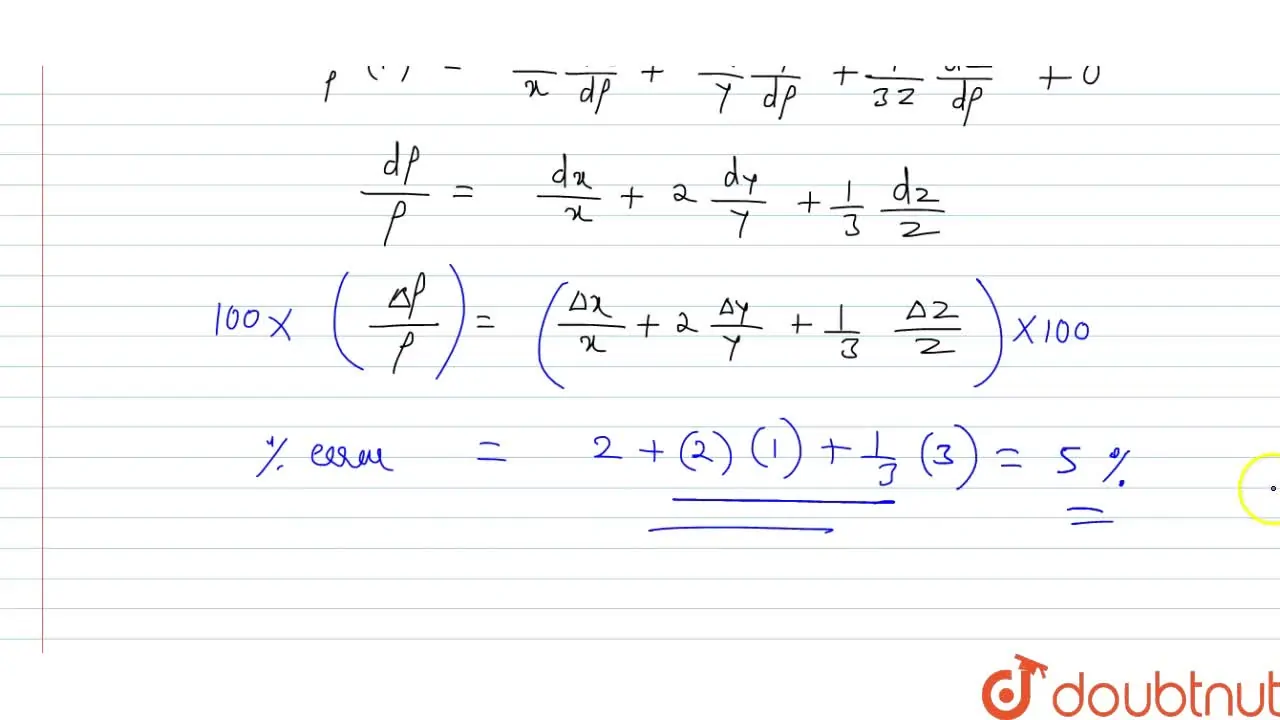 dρ/ρ = dx/x + 2 dy/y + 1/3 dz/z
100 × (Δρ/ρ) = (Δx/x + 2 Δy/y + 1/3 Δz/z) × 100
% error = 2 + (2) (1) + 1/3 (3) = 5 %
doubtnut